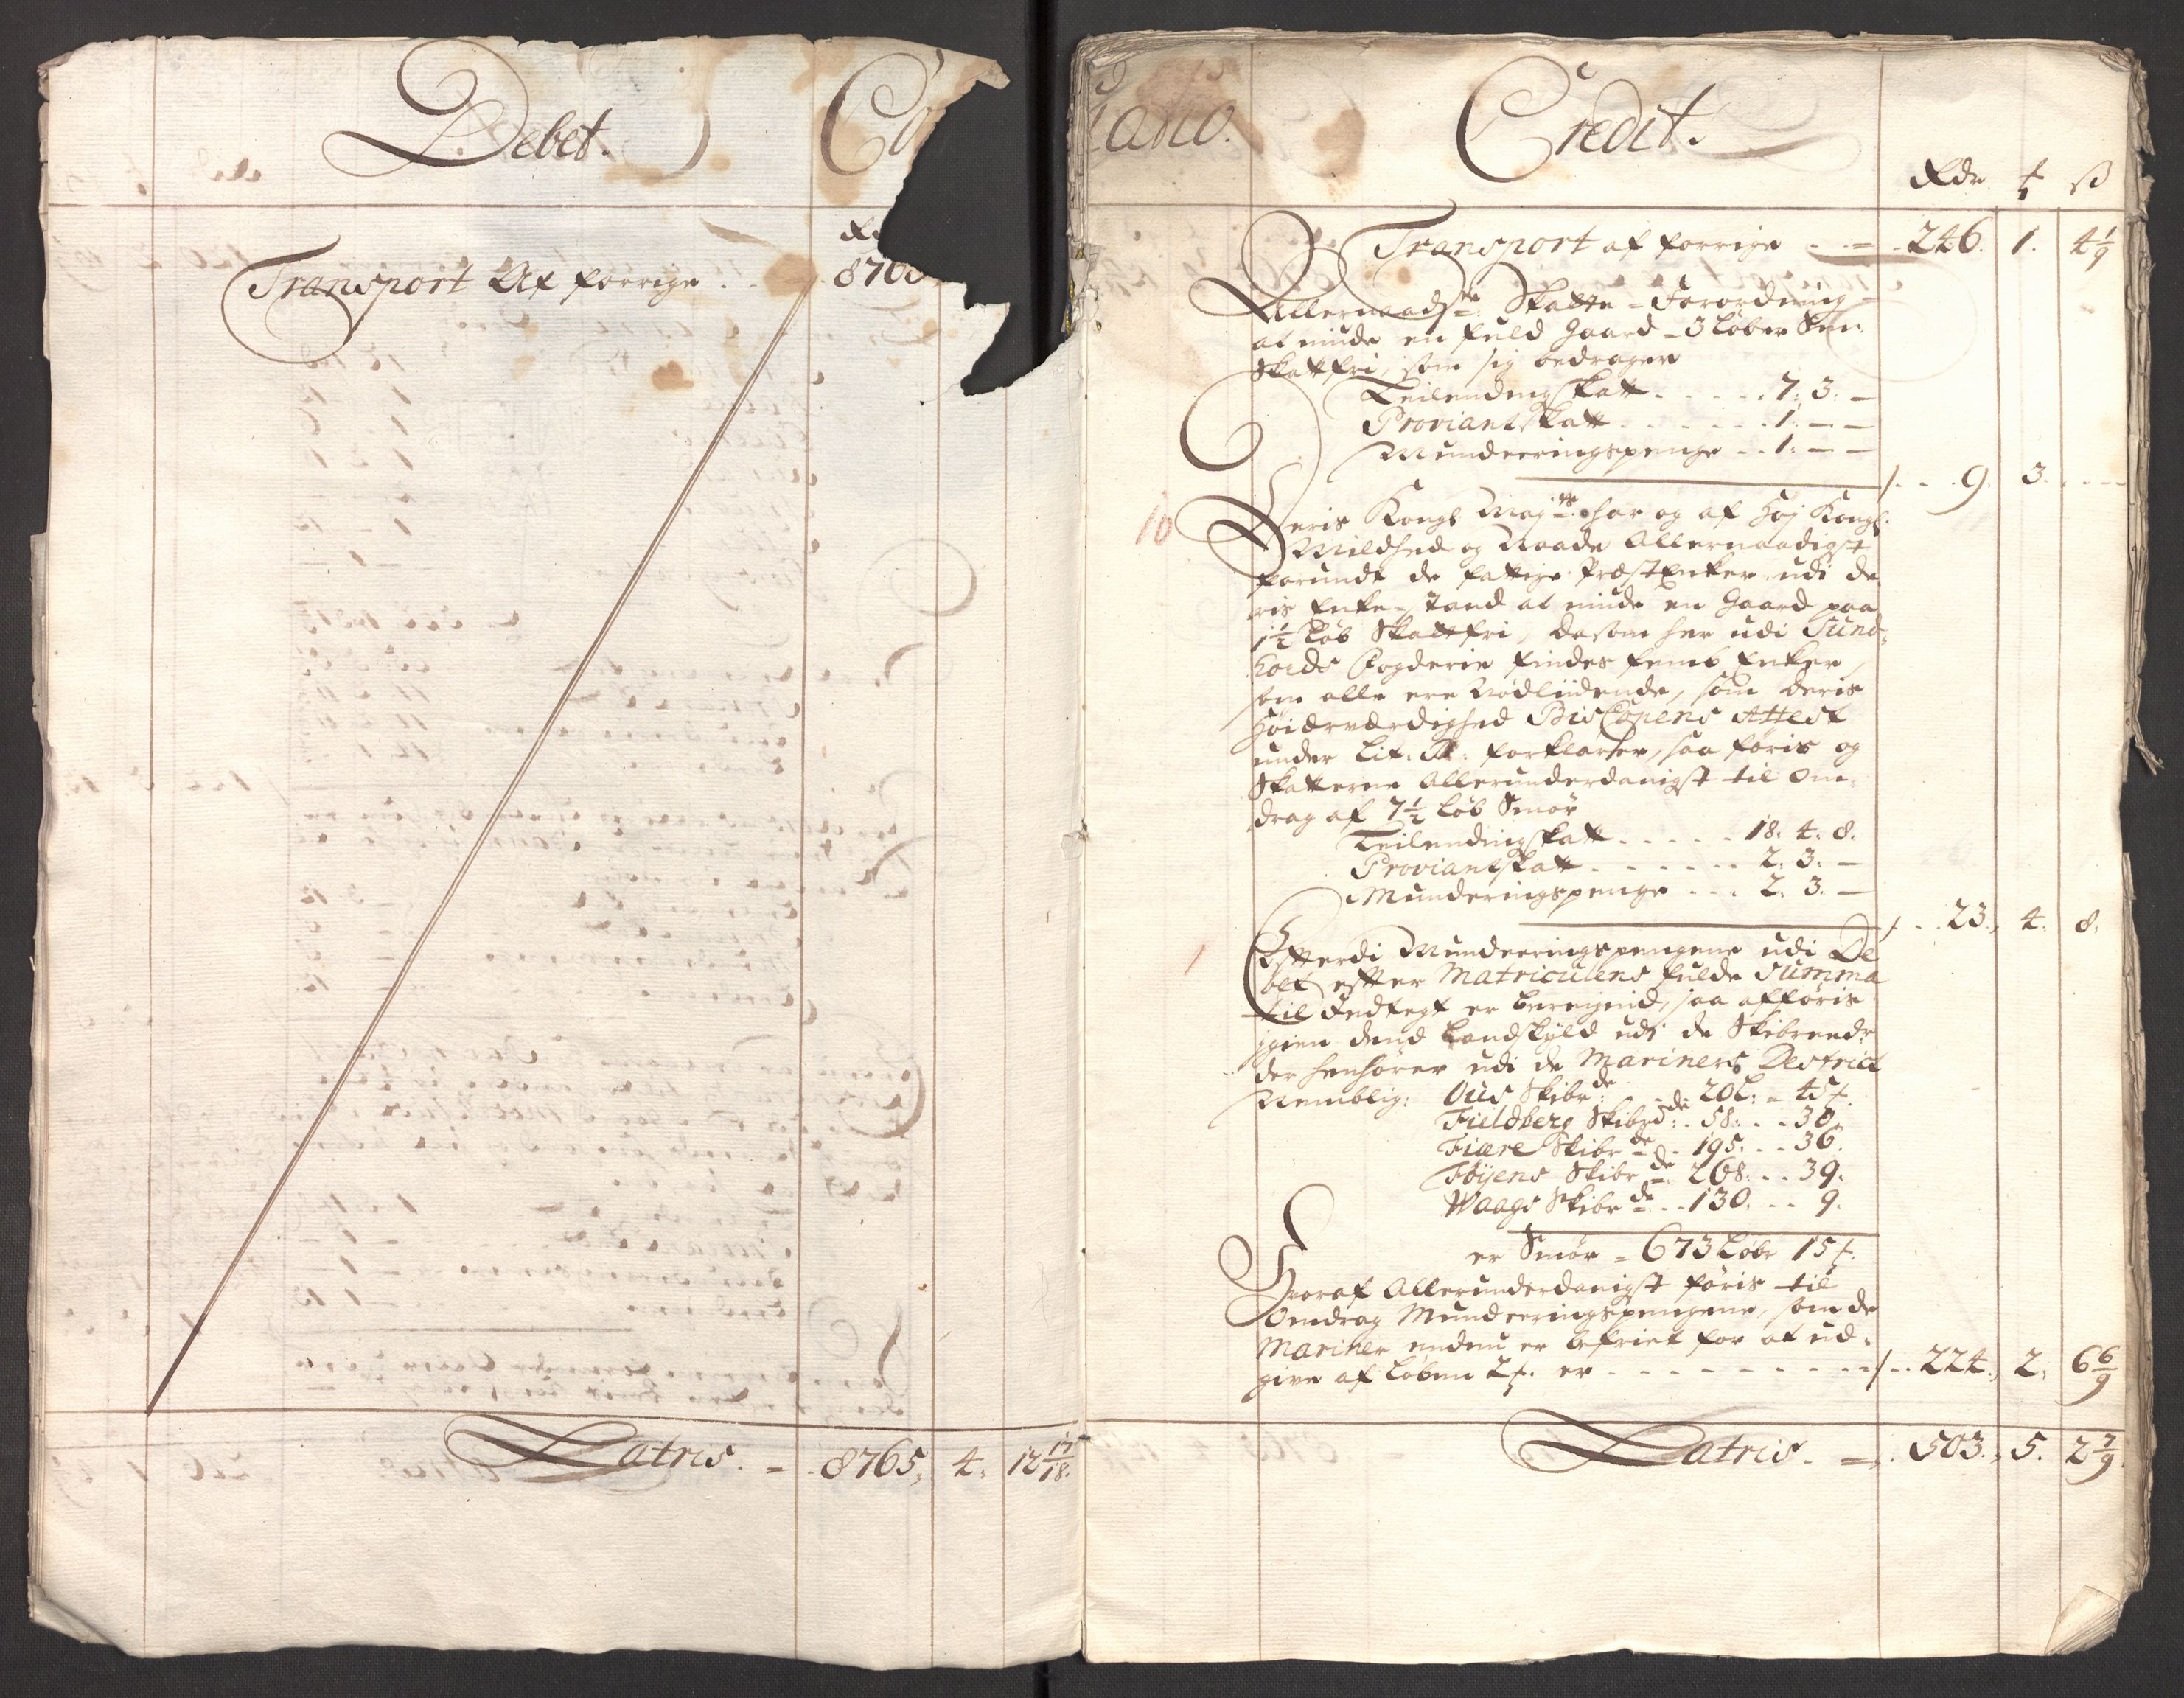 Debet. Co
Rd
Transport Af forrige . . 8765
Latris. = . 8765, 4, 12 17/18.
iano. Credit.
Rdr ₰ ß
Transport af forrige . . = . 246. 1. 4 1/9
Allernaadste Skatte-Forordning
at niude en fuld Gaard - 3 Løber Smr
Skattfri, som sig bedrager
Leilendingskatt . . . . . 7: 3. —
Proviantskatt . . . . . . 1. — —
Munderingspenge . . 1. — —
/ . . . 9. 3. . . .
10
Deris Kongl Maytt har og af høj Kongl:
Mildhed og Naade Allernaadigst
forundt de fattige PræstEnker udi de
ris Enke-stand at niude en Gaard paa
1½ Løb Skattfri, dersom her udi Sund-
hords Fogderie findes femb Enker,
som alle ere Nødliidende, som deris
Høiærværdighed Biscopens Attest
under Lit: forklarer, saa føris og
Skatterne Allerunderdanigst til Om-
drag af 7½ Løb Smør
Leilendingskatt . . . . . 18. 4. 8.
Proviantskatt . . . . . . 2. 3. —
Munderingspenge . . . 2. 3. —
/ . . 23., 4. 8.
Efterdi Munderingspengene udi De
bet efter Matriculens fulde Summa
til Indtegt er beregnid, saa afføris
igien dend Landskyld udi de Skibreeder
der henhører udi de Mariners District
Nemblig: Ous Skibrde: 20 L: - 45 ₰.
Fieldberg Skibrde: . 58: . . 30.
Fiære Skibrde . 195. . . 36.
Føyens Skibrde. 268. . . 39.
Waags Skibrde . . 130. . . 9.
er Smør = 673 Løbr 15 ₰.
Hvoraf Allerunderdanigst føris til
Omdrag Munderingspengene, som de
Mariner endnu er befriet for at ud-
give af Løben 2 ₰. er - - - - - - - / . . 224., 2. 6 6/9
Latris. = . 503., 5. 2 7/9